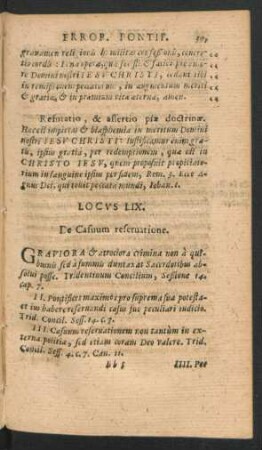 ERROR. PONTIF.
Domini nostri IESV CHRISTI, sedant tibi
in remissionem peccatorum, in augmentum meriti
& gratiæ, & in præmium vitæ æternæ, amen.
Refutatio, & assertio piæ doctrinæ.
Hæc est impietas & blasphemia in meritum Domini
nostri IESV CHRISTI: iustificamur enim gratis,
ipsius gratia, per redemptionem, quæ est in
CHRISTO IESV, quem proposuit propitiatorium
in sanguine ipsius per fidem, Rom. 3. Ecce agnus
Dei, qui tollit peccata mundi, Iohan. 1.
LOCVS LIX.
De Casuum reseruatione.
GRAVIORA & atrociora crimina non à quibusuis
sed à summis duntaxat Sacerdotibus absolui
posse. Tridentinum Concilium, Sessione 14.
cap. 7.
II. Pontifices maximos pro suprema sua potestatem
habere reseruandi casus suo peculiari iudicio.
Trid. Concil. Sess. 14. c. 7.
III. Casuum reseruationem non tantùm in externa
politia, sed etiam coram Deo valere. Trid.
Concil. Sess. 4. c. 7. Can. 11.
bb 5
IIII. Pec